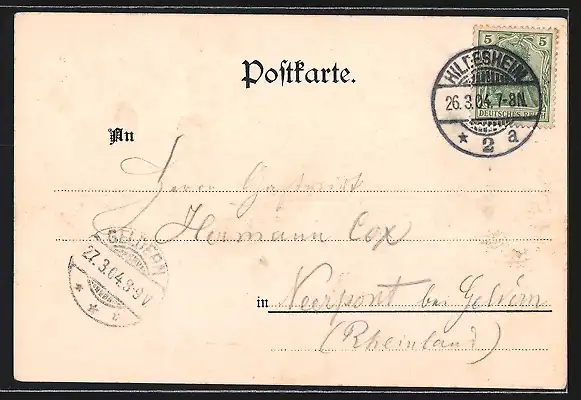 Postkarte.
5 5
DEUTSCHES REICH
HILDESHEIM
26.3.04.7-8N.
* 2 a
An
Herrn Gastwirt
Hermann Cox
GELDERN
27.3.04.8-9V
* * c
in Veerpont bei Geldern
(Rheinland)